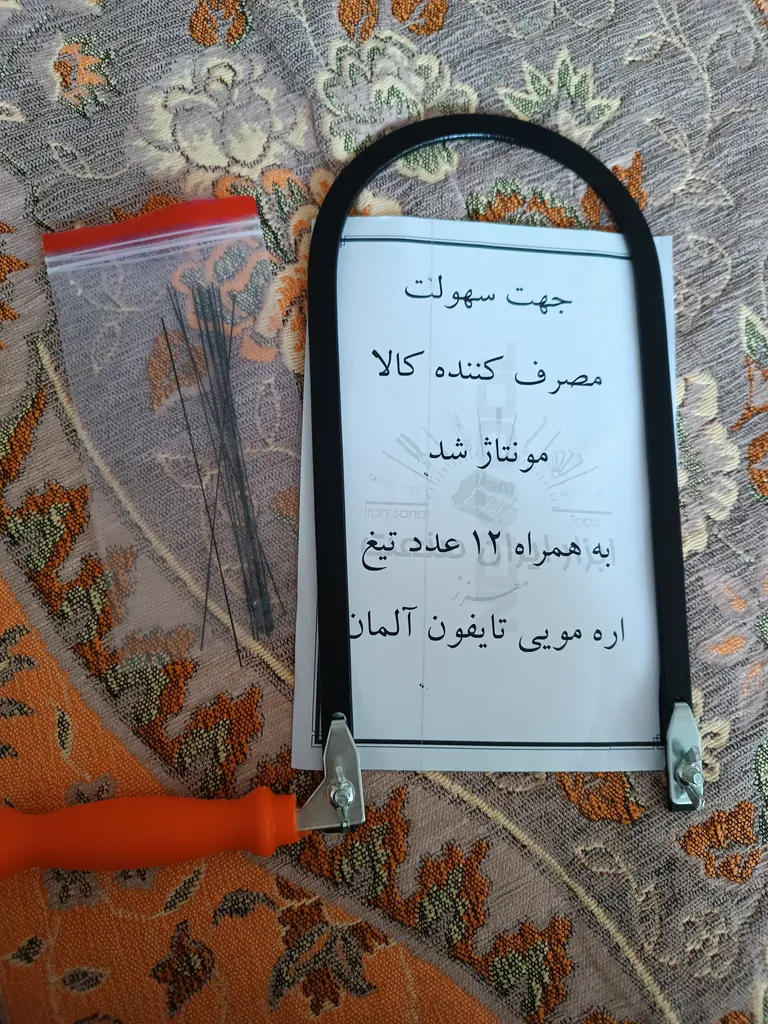 جهت سهولت
مصرف کننده کالا
مونتاژ شد
Iran sanat Tools
به همراه ۱۲ عدد تیغ
اره مویی تایفون آلمان